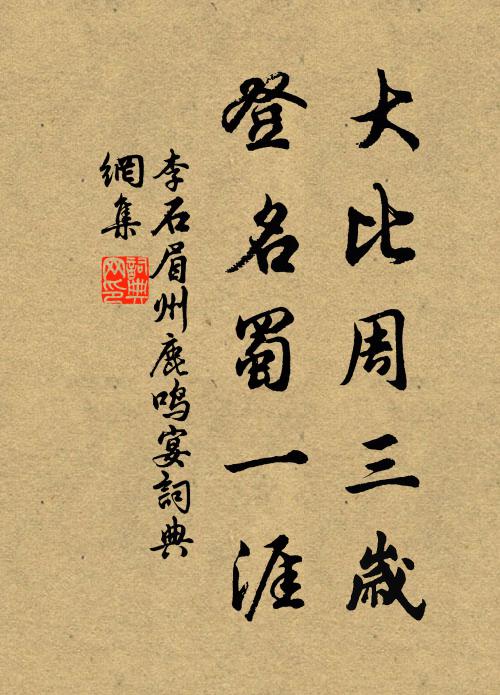 大比周三歲
登名蜀一涯
李石眉州鹿鳴宴詞典
網集
詞典網印